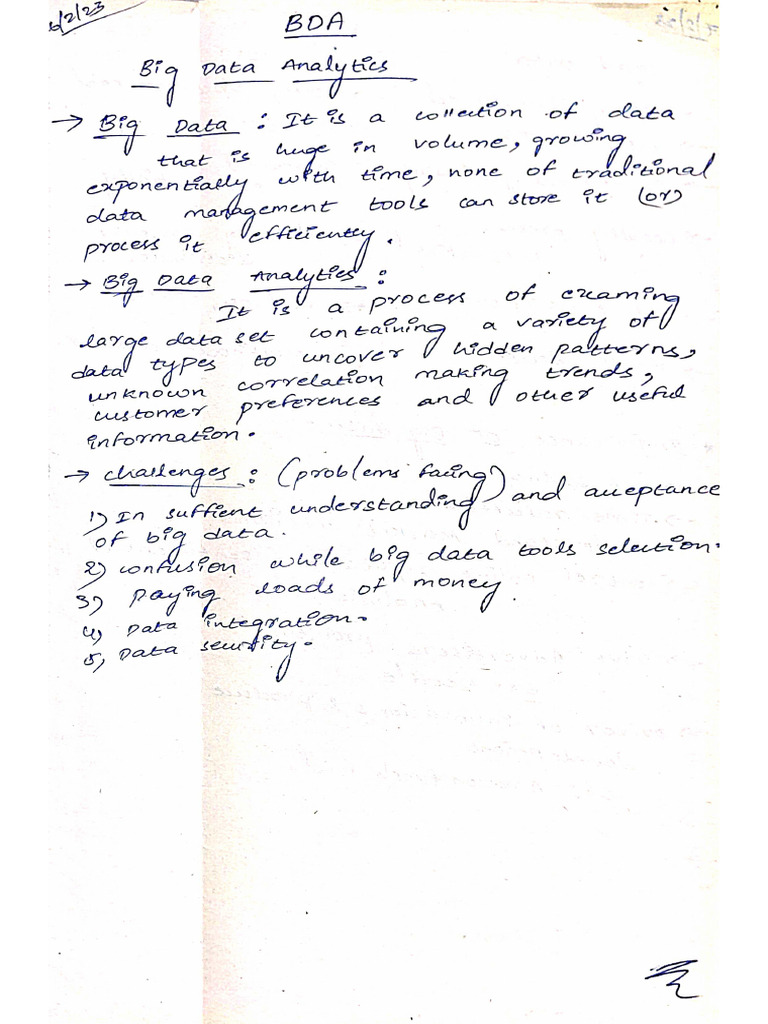 6/2/23
BDA
Big Data Analytics
→ Big Data : It is a collection of data
that is huge in volume, growing
exponentially with time, none of traditional
data management tools can store it (or)
process it efficiently.
→ Big Data Analytics :
It is a process of examing
large data set containing a variety of
data types to uncover hidden patterns,
unknown correlation making trends,
customer preferences and other useful
information.
→ challenges : (problems facing) and acceptance
1) In suffient understanding
of big data.
2) confusion while big data tools selection.
3) Paying loads of money.
4) Data integration.
5) Data security.